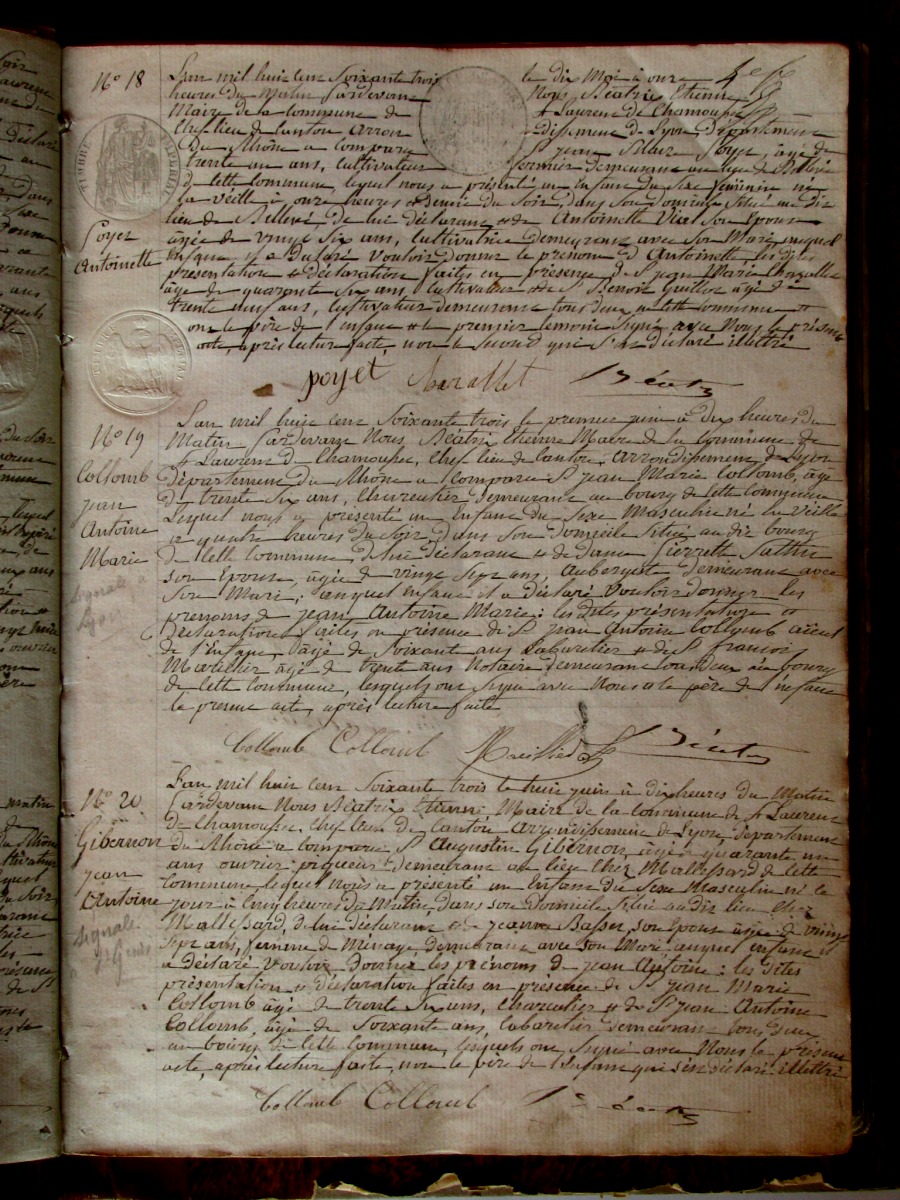 N° 18
Poyet
Antoinette
L'an mil huit cent Soixante trois le dix Mai à onze
heures du Matin Pardevant Nous Béatrix Etienne
Maire de la commune de St Laurent de Chamousset
Chef lieu de Canton Arrondissement de Lyon, Département
du Rhône a comparu St jean Poyet, âgé de
trente un ans, Cultivateur fermier demeurant au lieu de
de Cette Commune, lequel nous a présenté un Enfant du Sexe féminin né
la veille à onze heures du Soir, dans Son Domicile Situé au dit
lieu de de lui déclarant & de Antoinette Vial Son Epouse
âgée de vingt Six ans, Cultivatrice demeurant avec Son Mari, auquel
Enfant il a déclaré Vouloir Donner le prénom d'Antoinette, les dites
présentation & déclaration faites en présence de St jean Marie
âgé de quarante Six ans, Cultivateur & de St Benoit Guillot âgé de
trente neuf ans, Cultivateur demeurant tous deux a cette Commune &
ont le père de l'enfant & le premier témoin Signé avec Nous le présent
acte, après lecture faite, non le Second qui S'est déclaré illettré
poyet Béatrix
N° 19
Collomb
jean
Antoine
Marie
Signalé à
Lyon
L'an mil huit cent Soixante trois le premier juin à dix heures du
Matin Pardevant Nous Béatrix Etienne Maire de la Commune de
St Laurent de Chamousset, Chef lieu de Canton, Arrondissement de Lyon
Département du Rhône a Comparu St jean Marie Collomb, âgé
de trente Six ans, Charcutier demeurant au bourg de Cette Commune
Lequel nous a présenté un Enfant du Sexe Masculin né la Veille
a quatre heures du Soir, dans Son Domicile Situé au dit bourg
de Cette Commune de lui déclarant & de dame Pierrette
Son Epouse, âgée de vingt Sept ans, Aubergiste demeurant avec
Son Mari; auquel enfant il a déclaré Vouloir Donner les
prénoms de jean Antoine Marie; les dites présentation &
Déclaration faites en présence de St jean Antoine Collomb aïeul
de l'Enfant, âgé de Soixante ans Cabaretier & de St francois
âgé de trente ans Notaire demeurant tous deux au bourg
de Cette Commune, lesquels ont Signé avec Nous & le père de l'enfant
le présent acte, après lecture faite
Collomb Collomb Béatrix
N° 20
Gibernon
jean
Antoine
Signalé
à
L'an mil huit cent Soixante trois le huit juin à dix heures du Matin
Pardevant Nous Béatrix Etienne Maire de la Commune de St Laurent
de Chamousset, Chef lieu de Canton Arrondissement de Lyon, département
du Rhône a comparu St Augustin Gibernon, âgé de quarante un
ans ouvrier piqueur demeurant au lieu Chez Mallessard de Cette
Commune, lequel Nous a présenté un Enfant du Sexe Masculin né le
jour à Cinq heures du Matin, dans son domicile Situé au dit lieu Chez
Mallessard, de lui déclarant & de jeanne Basset, son Epouse âgée de vingt
Sept ans, femme de Ménage, demeurant avec Son Mari auquel enfant il
a déclaré vouloir donner les prénoms de jean Antoine; les dites
présentation & déclaration faites en présence de St jean Marie
Collomb âgé de trente Six ans, Charcutier & de St jean Antoine
Collomb, âgé de Soixante ans, Cabaretier demeurant tous deux
au bourg de Cette Commune, lesquels ont Signé avec Nous le présent
acte, après lecture faite, non le père de l'Enfant qui s'en déclaré illettré
Collomb Collomb Béatrix